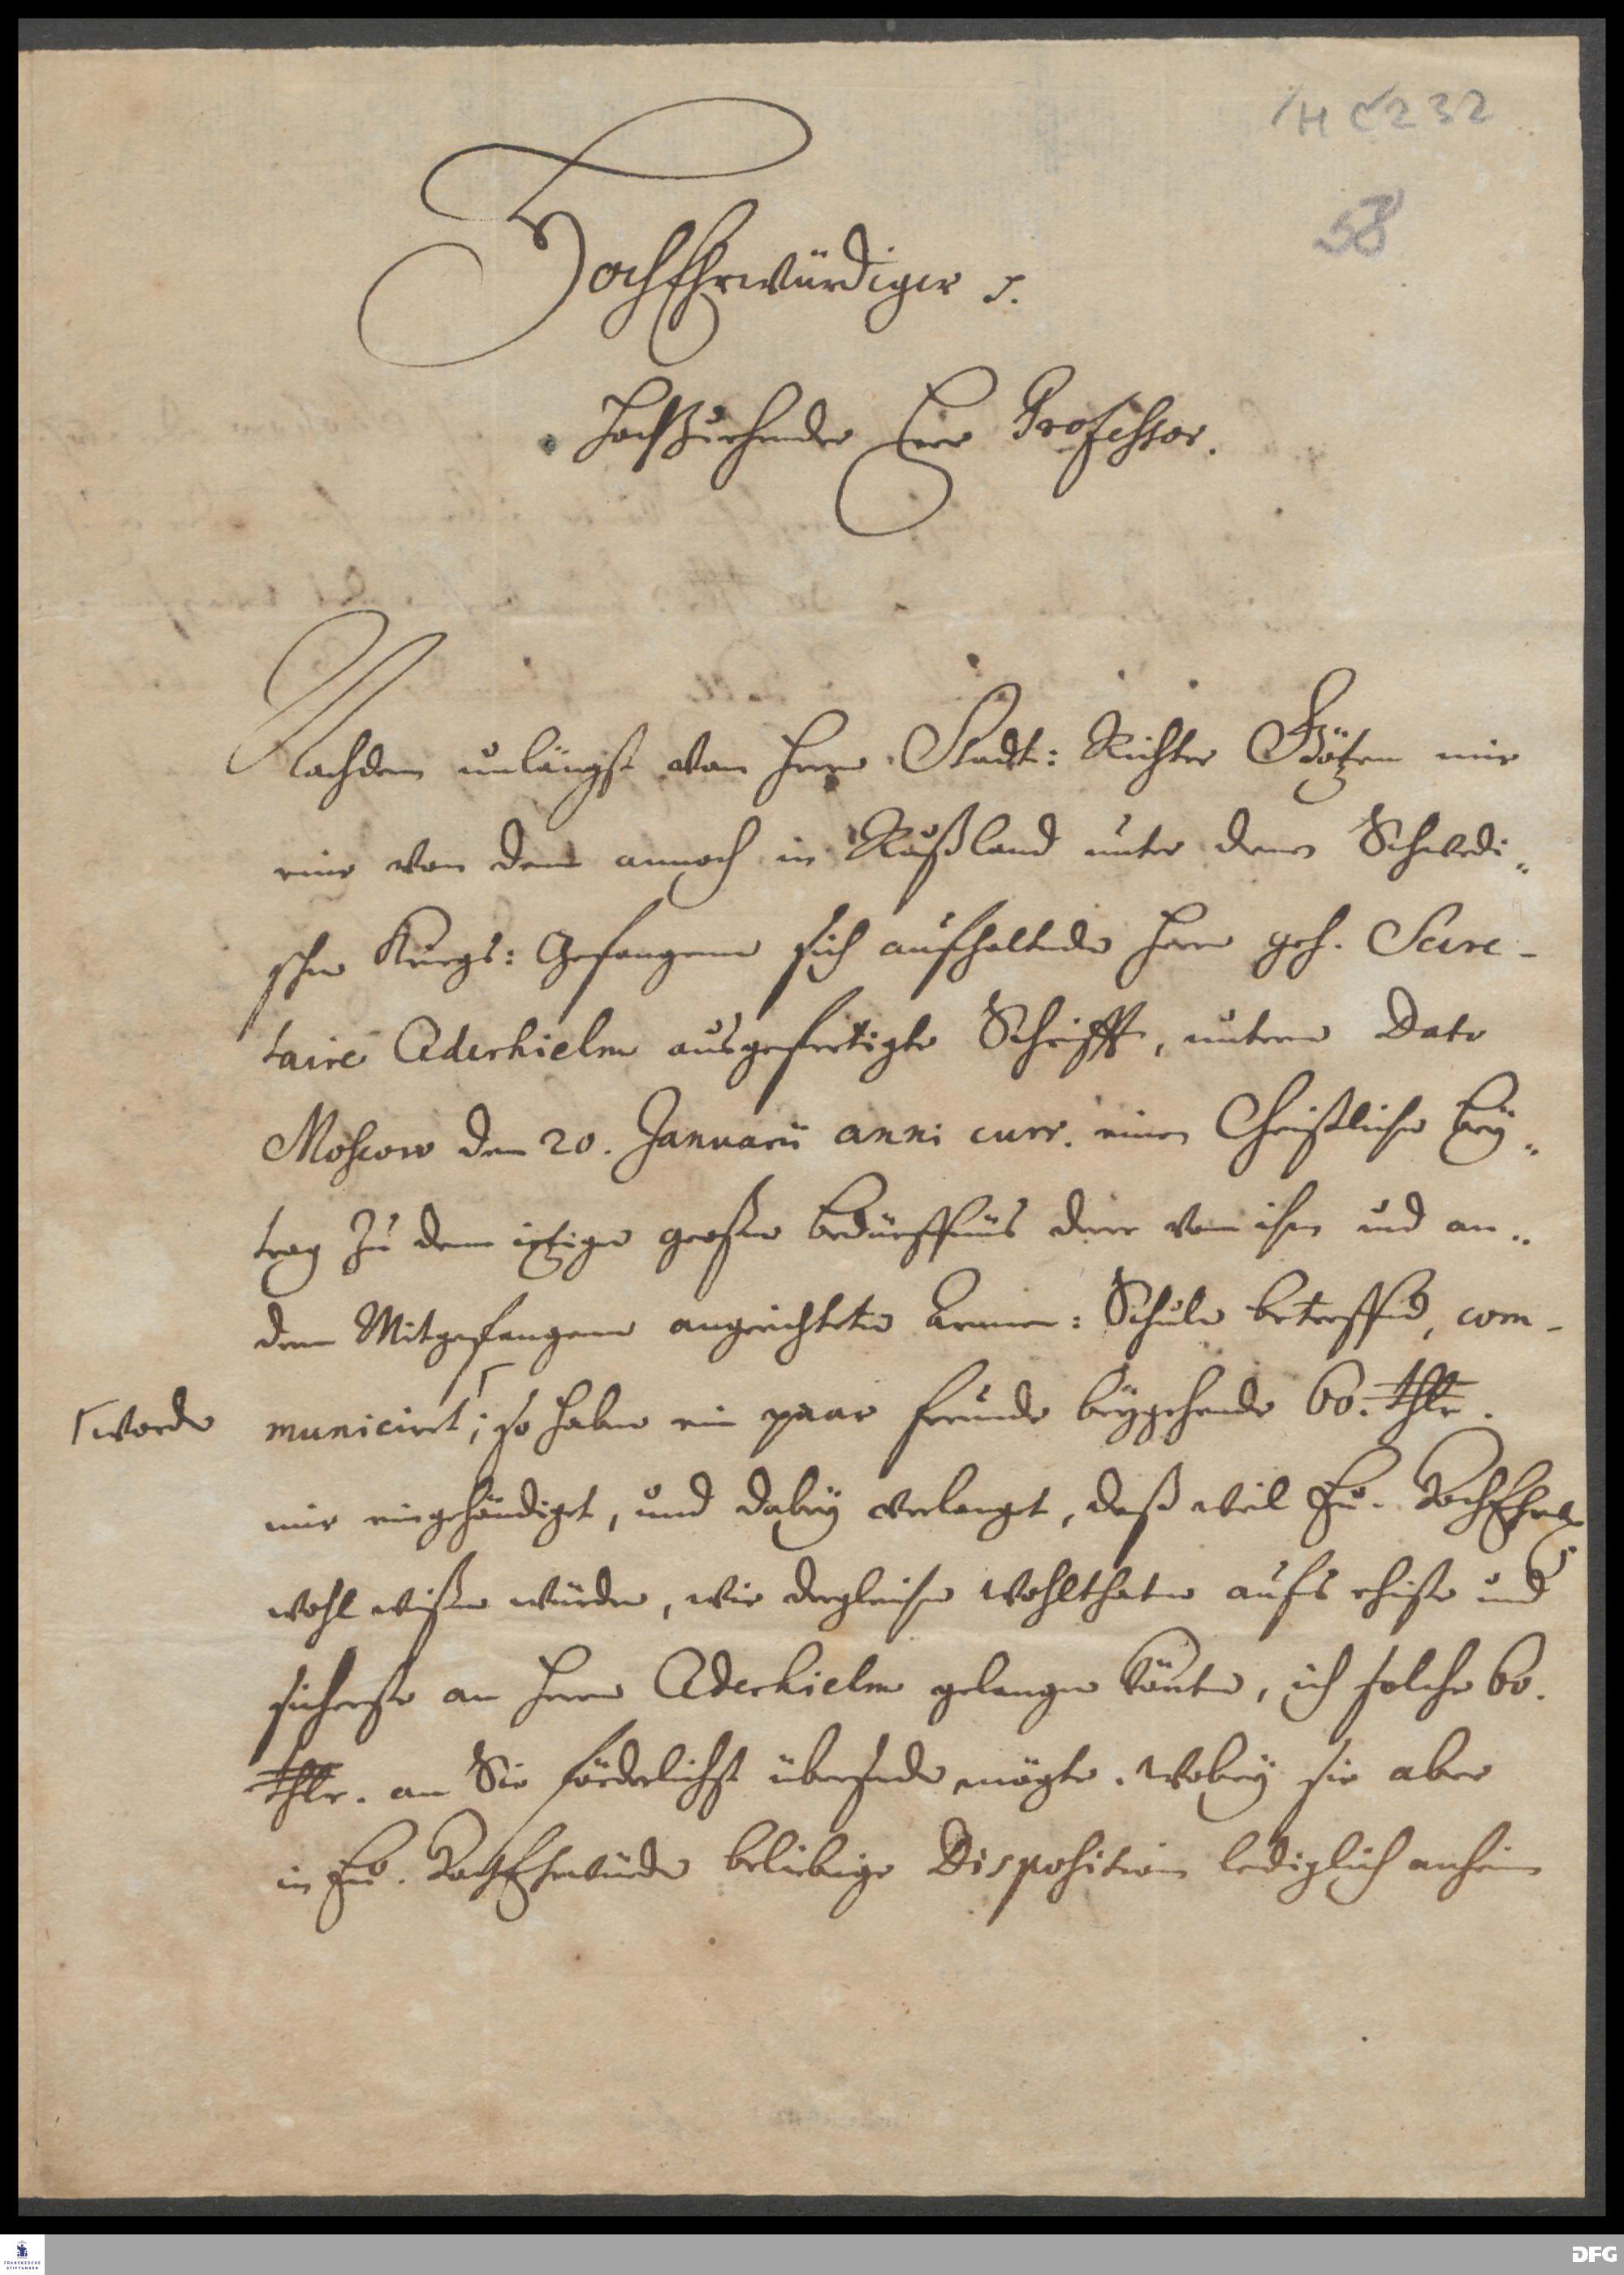 H C 232
58
HochEhrwürdiger ꝛ.
HochzuEhrender Herr Professor.
Nachdem unlängst von Herrn Stadt: Richter Götzen mir
eine von dem annoch in Rußland unter denen Schwedi-
schen Kriegs: Gefangenen sich aufhaltenden Herrn geh. Secre-
taire Cederhielm ausgefertigte Schrifft, unterm Dato
Moscow den 20. Januarii anni curr. einen Christlichen Bey-
trag zu dem itzigen großen Bedürffnüs derer von ihm und an-
dern Mitgefangenen angerichteten Armen: Schule betreffend, com-
municiret ⌈; so haben ein paar Freunde beygehende 60. thlr.
⌈worden
mir eingehändiget, und dabey verlangt, daß weil Eu. HochEhrw.
wohl wißen würden, wie dergleichen Wohlthaten aufs ehiste und
sicherste an Herrn Cederhielm gelangen könten, ich solche 60.
thlr. an Sie förderlichst übersenden mögte. Wobey sie aber
in Eu. HochEhrwürden beliebige Disposition lediglich anheim
FRANCKESCHE
STIFTUNGEN
DFG